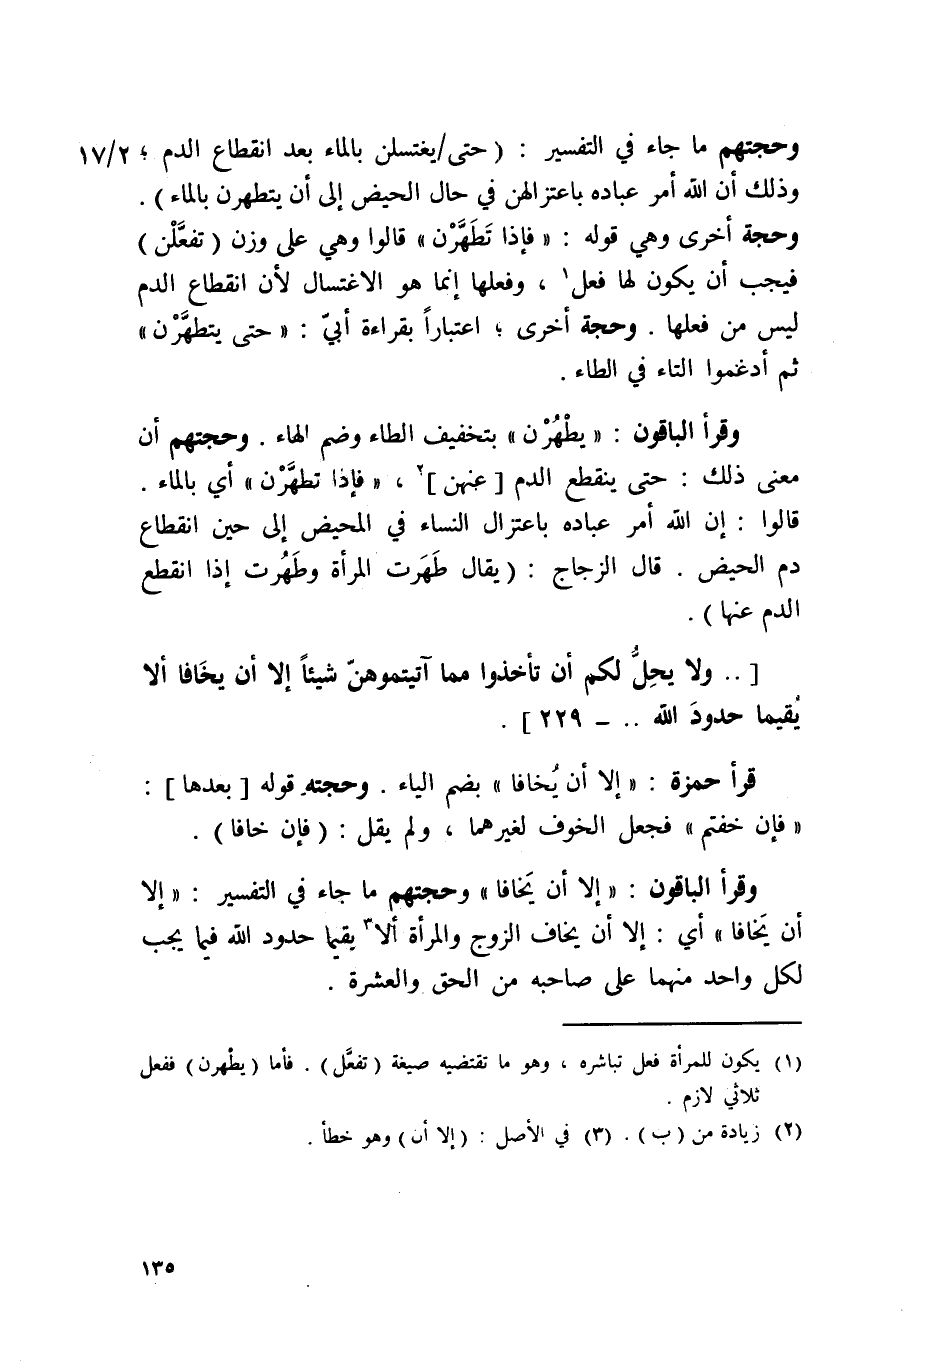 وحجتهم ما جاء في التفسير : ( حتى/يغتسلن بالماء بعد انقطاع الدم ؛ ١٧/٢
وذلك أن الله أمر عباده باعتزالهن في حال الحيض إلى أن يتطهرن بالماء ) .
وحجة أخرى وهي قوله : « فإذا تَطَهَّرْن » قالوا وهي على وزن ( تفعَّلْن )
فيجب أن يكون لها فعل١ ، وفعلها إنما هو الاغتسال لأن انقطاع الدم
ليس من فعلها . وحجة أخرى ؛ اعتباراً بقراءة أبيّ : « حتى يتطهَّرْن »
ثم أدغموا التاء في الطاء .
وقرأ الباقون : « يطْهُرْن » بتخفيف الطاء وضم الهاء . وحجتهم أن
معنى ذلك : حتى ينقطع الدم [ عنهن ]٢ ، « فإذا تطهَّرْن » أي بالماء .
قالوا : إن الله أمر عباده باعتزال النساء في المحيض إلى حين انقطاع
دم الحيض . قال الزجاج : ( يقال طَهَرت المرأة وطَهُرت إذا انقطع
الدم عنها ) .
[ .. ولا يحِلُّ لكم أن تأخذوا مما آتيتموهنّ شيئاً إلا أن يخَافا ألا
يُقيما حدودَ الله .. – ٢٢٩ ] .
قرأ حمزة : « إلا أن يُخافا » بضم الياء . وحجته قوله [ بعدها ] :
« فإن خفتم » فجعل الخوف لغيرهما ، ولم يقل : ( فإن خافا ) .
وقرأ الباقون : « إلا أن يَخافا » وحجتهم ما جاء في التفسير : « إلا
أن يَخافا » أي : إلا أن يخاف الزوج والمرأة ألا٣ يقيما حدود الله فيما يجب
لكل واحد منهما على صاحبه من الحق والعشرة .
(١) يكون للمرأة فعل تباشره ، وهو ما تقتضيه صيغة ( تفعَّل ) . فأما ( يطْهرن ) ففعل
ثلاثي لازم .
(٢) زيادة من ( ب ) . (٣) في الأصل : ( إلا أن ) وهو خطأ .
١٣٥